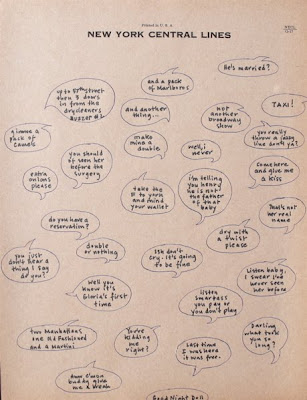 Printed in U. S. A.
NEW YORK CENTRAL LINES
He's married?
and a pack
of Marlboros
up to 57th street
then 3 doors
in from the
drycleaners
buzzer #1
and another
thing...
not
another
broadway
show
TAXI!
gimme a
pack of
camels
make
mine a
double
well, i
never
you really
throw a jazzy
line don't ya?
you should
of seen her
before the
surgery
come here
and give
me a kiss
extra
onions
please
take the
D to york
and mind
your wallet
i'm telling
you henry
he is not
the father
of that
baby
that's not
her real
name
do you have a
reservation?
dry with
a twist
please
you just
don't hear a
thing I say
do you?
double
or nothing
Shh don't
cry. it's going
to be fine
Listen baby,
I swear I'd
never seen
her before
Well you
know it's
Gloria's first
time
Listen
smartass
you pay or
you don't play
two Manhattans
one Old Fashioned
and a Martini
You're
kidding
me
right?
Darling
what took
you so
long?
Last time
I was here
it was free.
Aww c'mon
buddy give
me a break
Good Night Doll